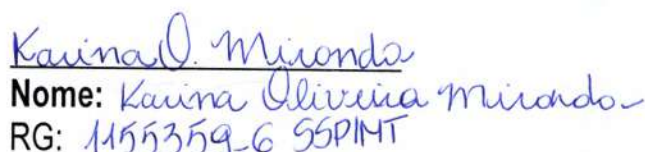 Karina O. Miranda
Nome: Karina Oliveira Miranda
RG: 1155359-6 SSP/MT